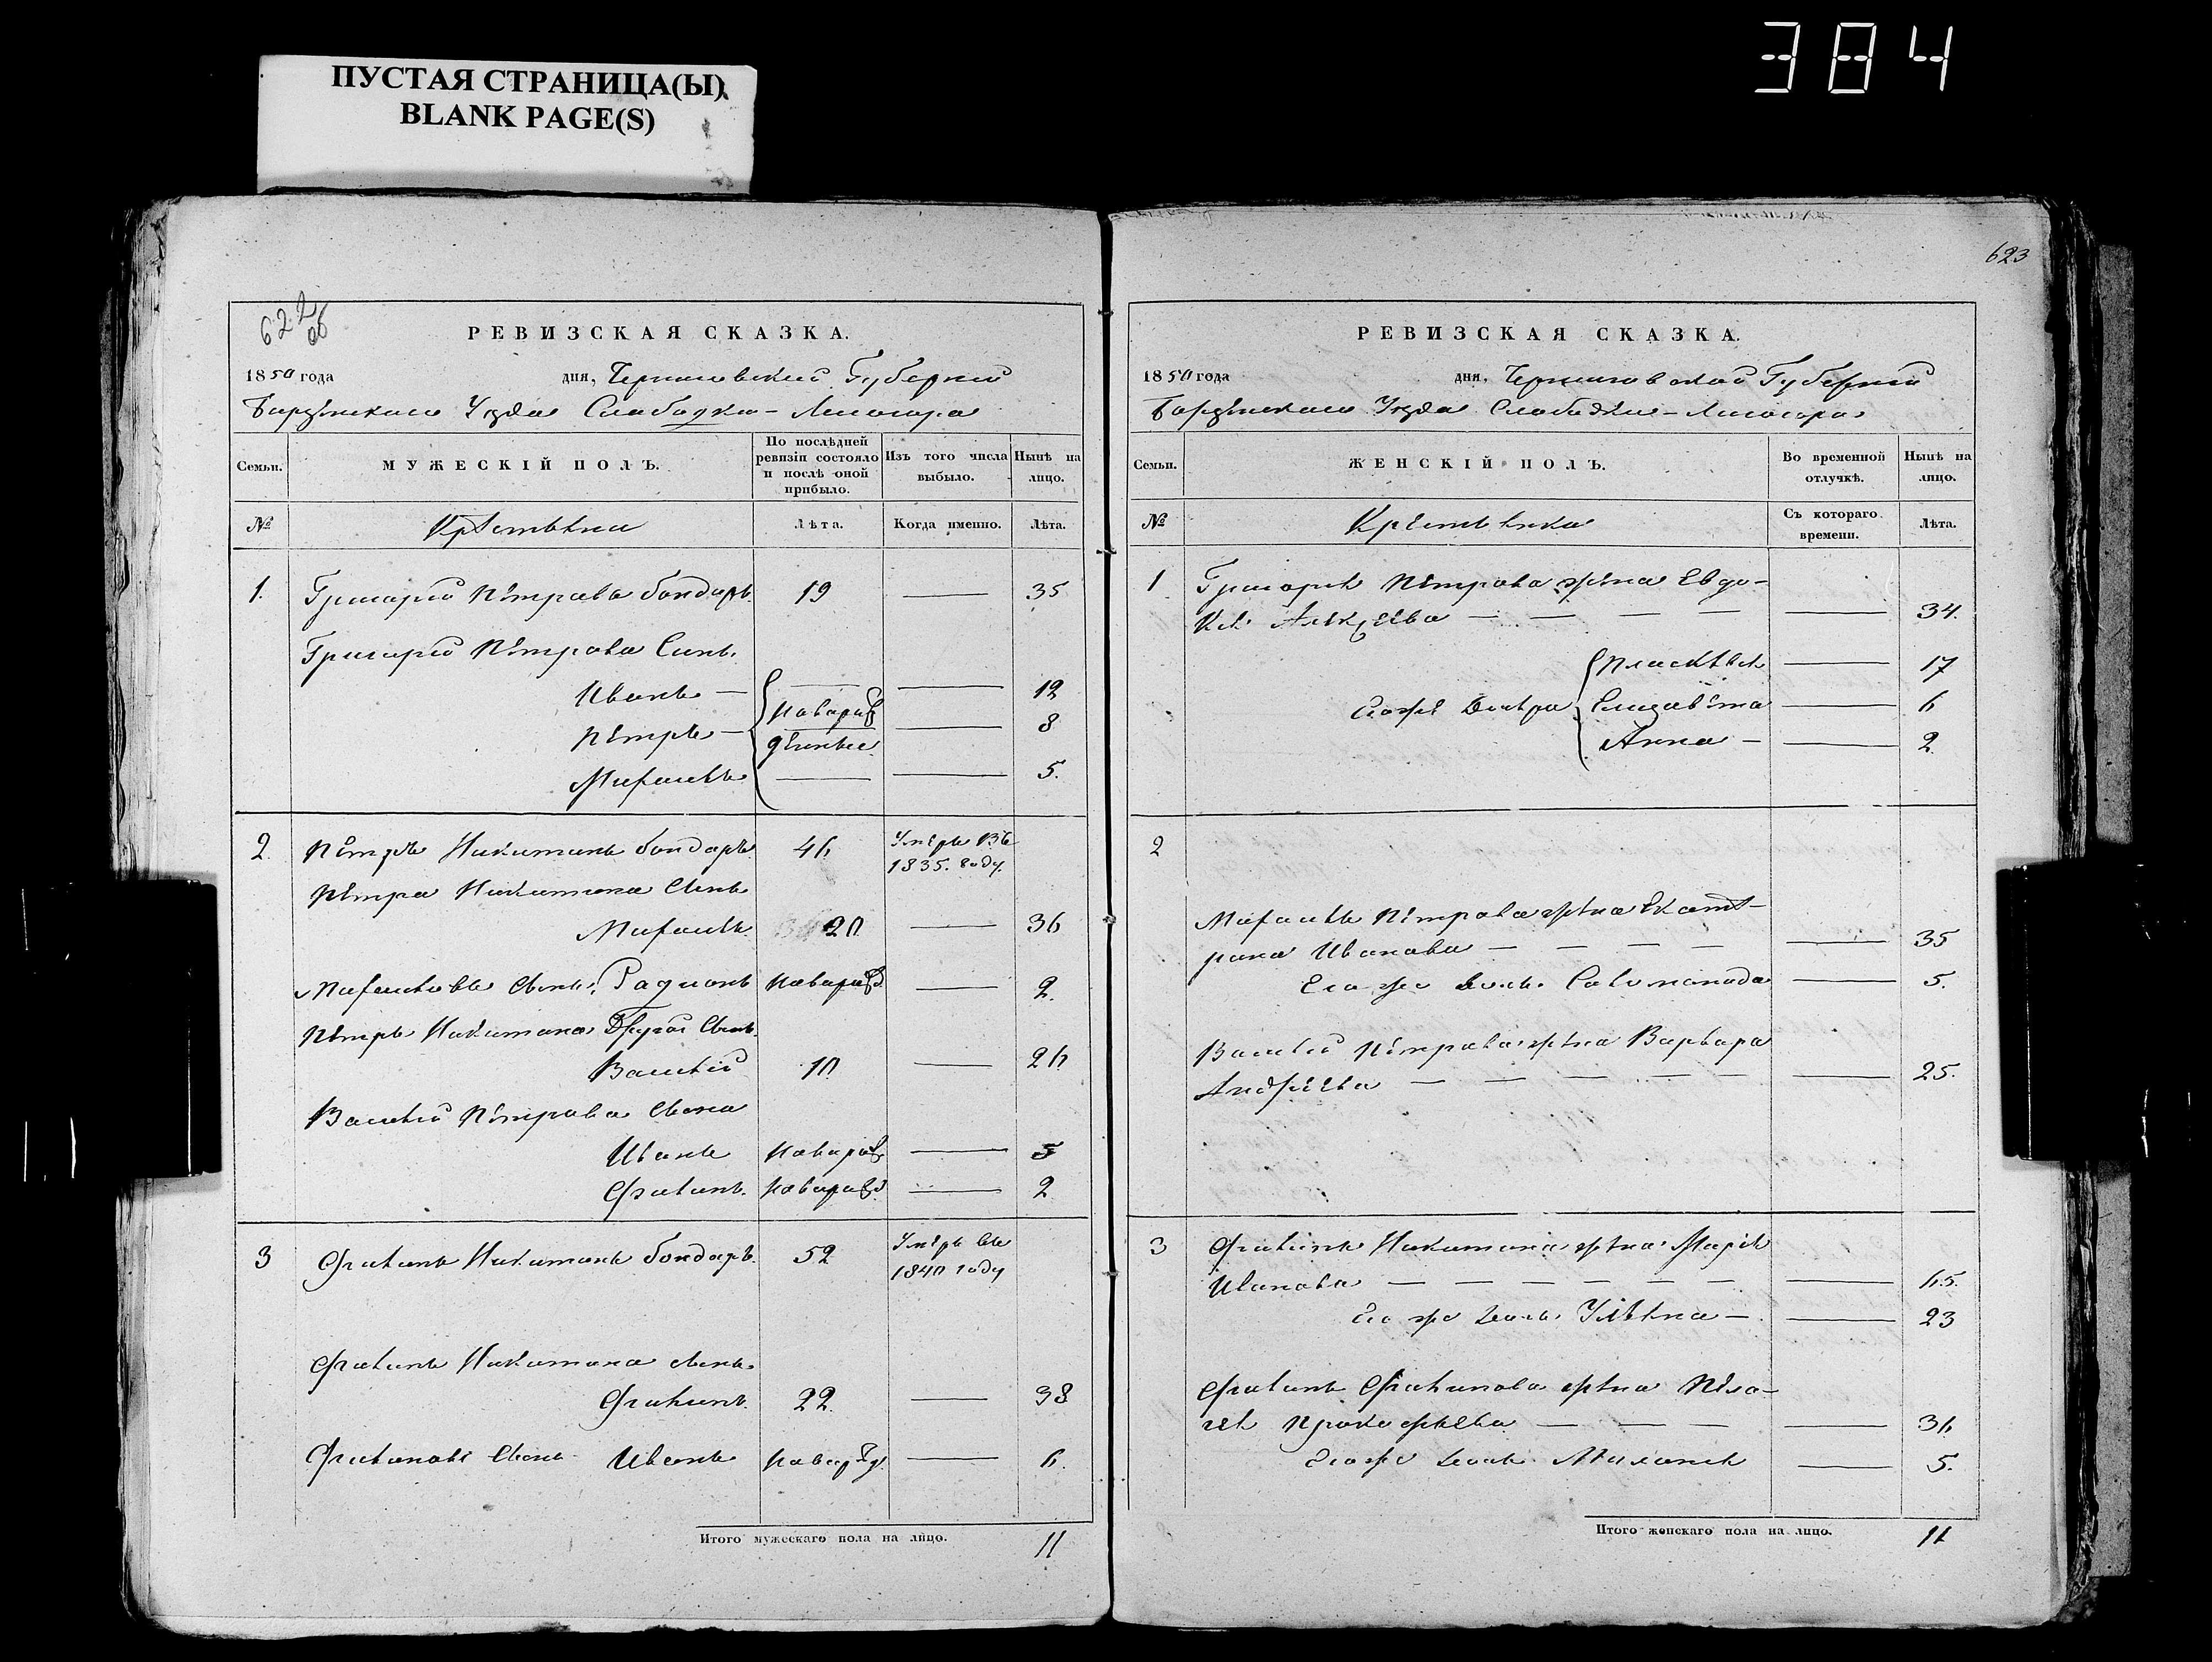 384
ПУСТАЯ СТРАНИЦА(Ы)
BLANK PAGE(S)
622 об
РЕВИЗСКАЯ СКАЗКА.
1850 года дня, Черниговской Губернии
Борзенскаго Уезда Слободки-Лисогора
Семьи.
МУЖЕСКІЙ ПОЛЪ.
По послѣдней ревизіи состояло и послѣ оной прибыло.
Изъ того числа выбыло.
Нынѣ на лицо.
№
Лѣта.
Когда именно.
Лѣта.
1. Григорій Петровъ бондарь 19 — 35
Григорій Петрова Сынъ
Иванъ — 12
Петръ — новорож денные — 8
5.
2. Петръ Никитинъ бондарь 46 Умеръ въ 1835. году.
Петра Никитина Сынъ
20 — 36
Сынъ, Радионъ новорожд — 2.
Петръ Никитина Другой Сынъ
Василій 10 — 26
Василій Петрова Сына
Иванъ новорож — 5
новорожд — 2
3 Никитинъ бондарь. 52 Умеръ въ 1840 году
Никитина сынъ
22. — 38
Сынъ Иванъ новорожд. — 6.
Итого мужескаго пола на лицо. 11
623
РЕВИЗСКАЯ СКАЗКА.
1850 года дня, Черниговской Губернии
Борзенскаго Уезда Слободки-Лисогора
Семьи.
ЖЕНСКІЙ ПОЛЪ.
Во временной отлучкѣ.
Нынѣ на лицо.
№
Съ котораго времени.
Лѣта.
1 Григорія Петрова жена Евдо-
кія Алексеева — — — — — 34.
17
Егоже Дочери Елизавета — 6
Анна — — 2.
2
Петрова жена Екате-
рина Иванова — — — — — 35
Его же дочь — 5.
Василій Петрова жена Варвара
Андреева — — — — — — 25.
3 Никитина жена Марія
Иванова — — — — — — — 65.
Его же дочь — — 23
жена Пела-
гея Прокофьева — — — — 36
Егоже дочь Маланія — 5.
Итого женскаго пола на лицо. 11